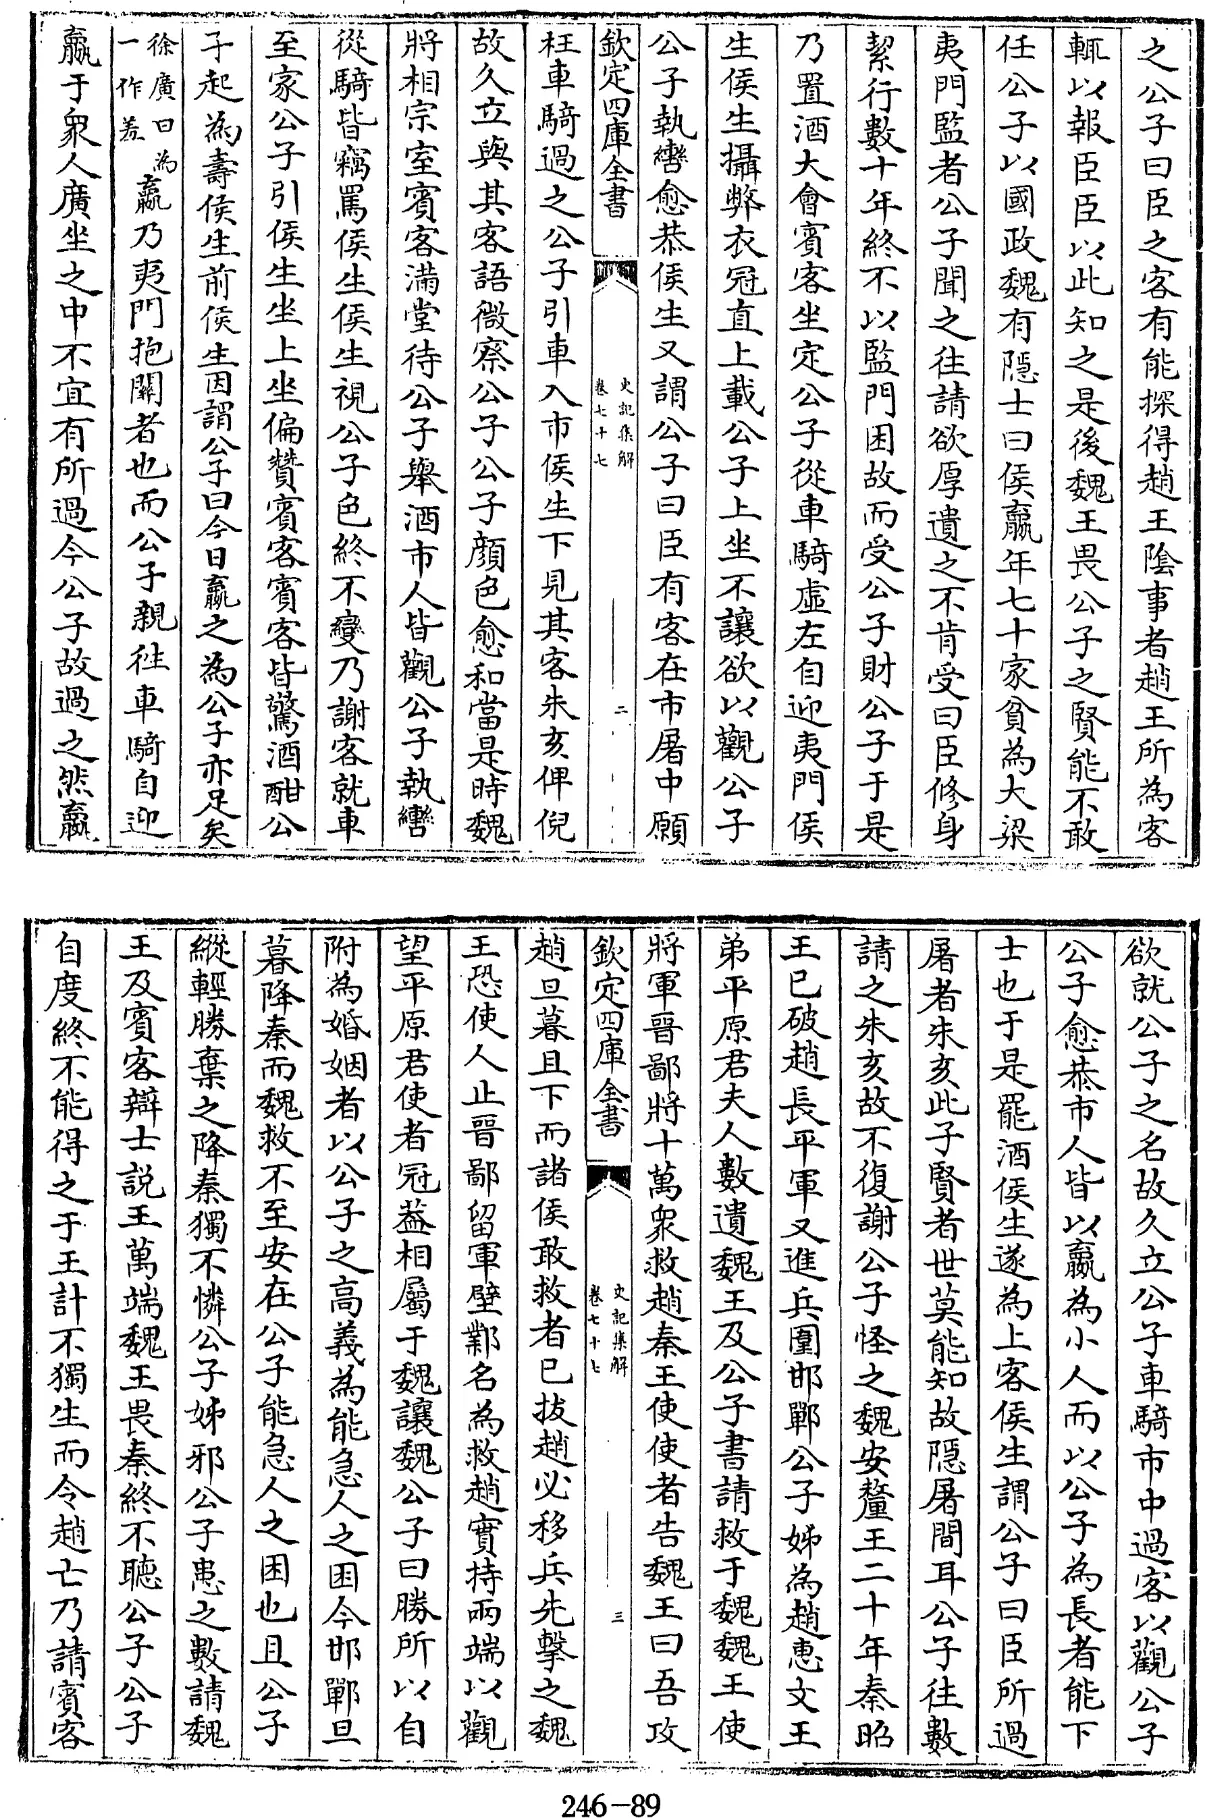 之公子曰臣之客有能探得趙王隂事者趙王所為客
輒以報臣臣以此知之是後魏王畏公子之賢能不敢
任公子以國政魏有隠士曰侯嬴年七十家貧為大梁
夷門監者公子聞之往請欲厚遺之不肯受曰臣修身
絜行數十年終不以監門困故而受公子財公子于是
乃置酒大會賓客坐定公子從車騎虛左自迎夷門侯
生侯生攝弊衣冠直上載公子上坐不讓欲以觀公子
公子執轡愈恭侯生又謂公子曰臣有客在市屠中願
欽定四庫全書
史記集解
卷七十七
二
枉車騎過之公子引車入市侯生下見其客朱亥俾倪
故久立與其客語微察公子公子顔色愈和當是時魏
將相宗室賓客滿堂待公子舉酒市人皆觀公子執轡
從騎皆竊罵侯生侯生視公子色終不變乃謝客就車
至家公子引侯生坐上坐徧贊賓客賓客皆驚酒酣公
子起為壽侯生前侯生因謂公子曰今日嬴之為公子亦足矣
徐廣曰為一作羞
嬴乃夷門抱關者也而公子親往車騎自迎
嬴于衆人廣坐之中不宜有所過今公子故過之然嬴
欲就公子之名故久立公子車騎市中過客以觀公子
公子愈恭市人皆以嬴為小人而以公子為長者能下
士也于是罷酒侯生遂為上客侯生謂公子曰臣所過
屠者朱亥此子賢者世莫能知故隠屠間耳公子往數
請之朱亥故不復謝公子怪之魏安釐王二十年秦昭
王已破趙長平軍又進兵圍邯鄲公子姊為趙惠文王
弟平原君夫人數遺魏王及公子書請救于魏魏王使
將軍晉鄙將十萬衆救趙秦王使使者告魏王曰吾攻
欽定四庫全書
史記集解
卷七十七
三
趙旦暮且下而諸侯敢救者已拔趙必移兵先擊之魏
王恐使人止晉鄙留軍壁鄴名為救趙實持兩端以觀
望平原君使者冠葢相屬于魏讓魏公子曰勝所以自
附為婚姻者以公子之高義為能急人之困今邯鄲旦
暮降秦而魏救不至安在公子能急人之困也且公子
縱輕勝棄之降秦獨不憐公子姊邪公子患之數請魏
王及賓客辯士説王萬端魏王畏秦終不聽公子公子
自度終不能得之于王計不獨生而令趙亡乃請賓客
246-89